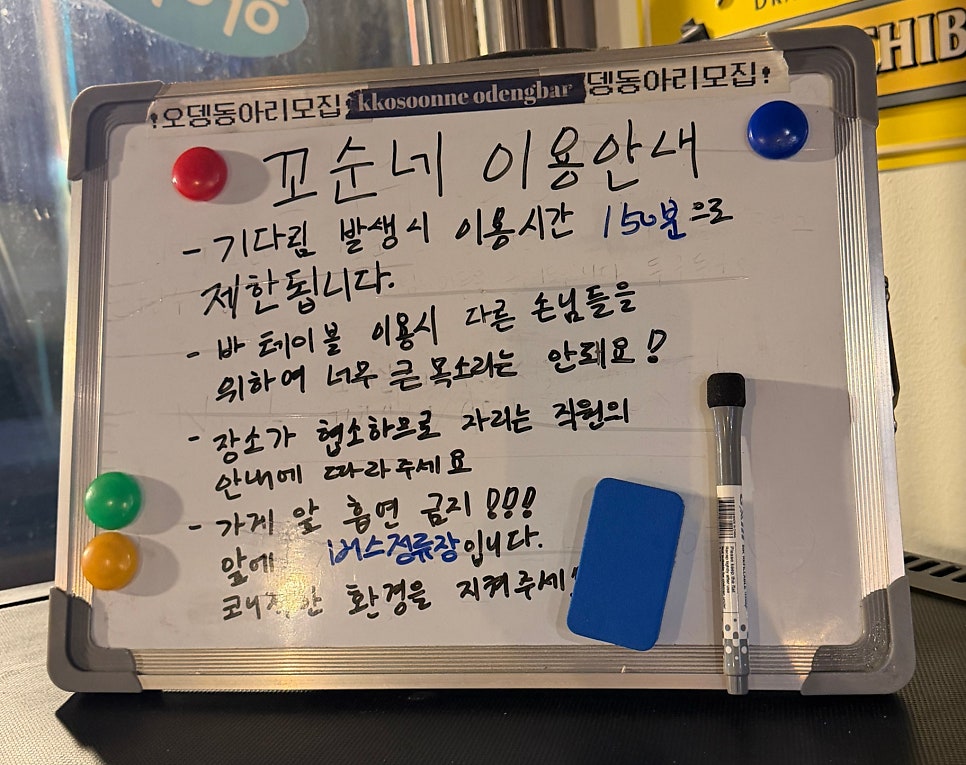 !오뎅동아리모집! kkosoonne odengbar 뎅동아리모집!
꼬순네 이용안내
- 기다림 발생시 이용시간 150분으로
제한됩니다.
- 바 테이블 이용시 다른 손님들을
위하여 너무 큰 목소리는 안돼요!
- 장소가 협소하므로 자리는 직원의
안내에 따라주세요
- 가게 앞 흡연 금지!!!
앞에 버스정류장입니다.
환경을 지켜주세
CHIB